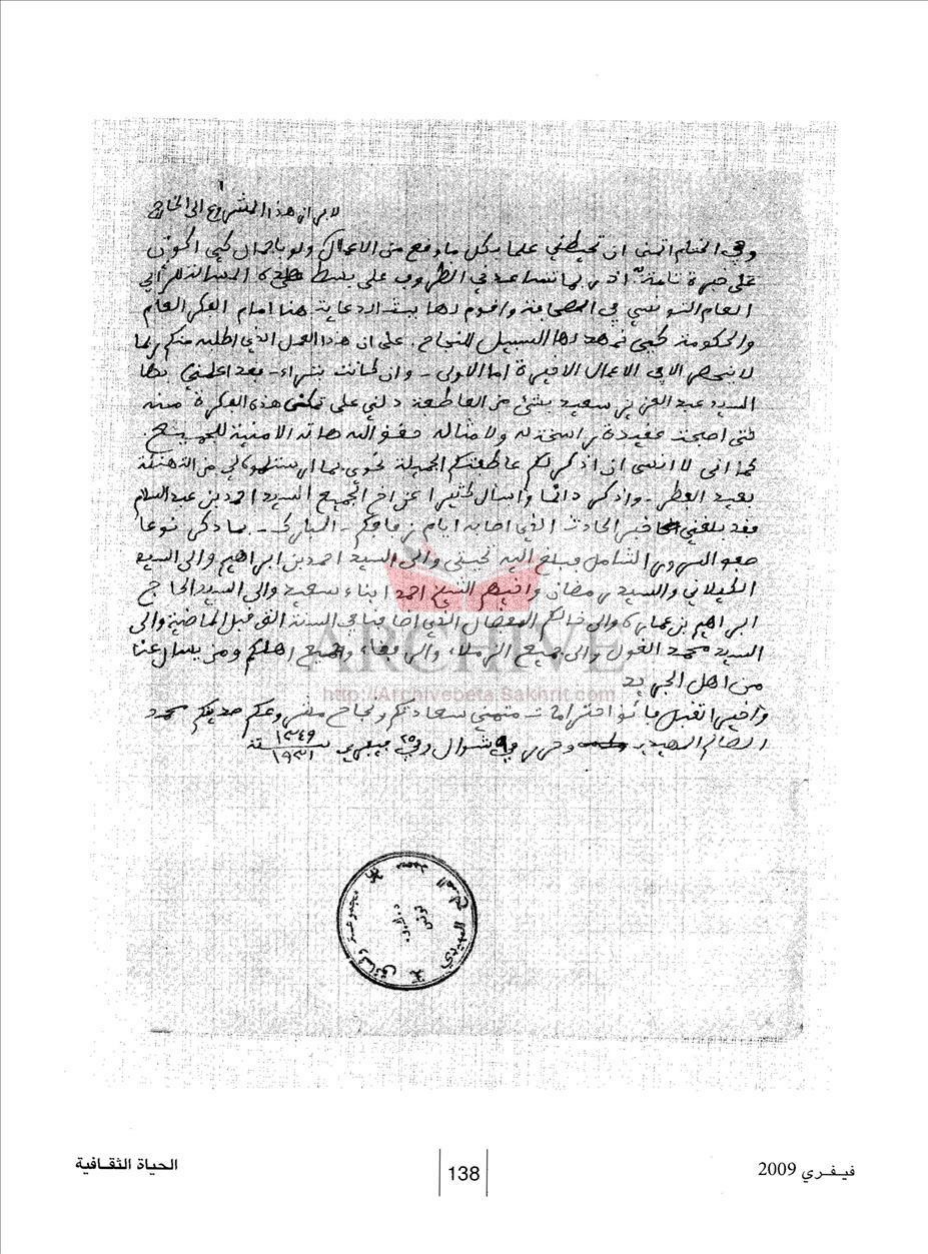 لابراز هذا المشروع الى الخارج
وفي الختام اتمنى ان تحيطني علما بكل ما وقع من الاعمال ولو باجمال كي اكون
على خبرة تامة اذ ربما تساعدني الظروف على بسط هذه المسالة للرأي
العام التونسي في الصحافة واقوم لها ببث الدعاية هنا امام الفكر العام
والحكومة كي نمهد لها السبيل للنجاح. على ان هذا العمل الذي اطلبه منكم ربما
لا ينحصر الا في الاعمال الاخيرة اما الاولى - وان كانت بتراء - بعد اعلمني بها
السيد عبد العزيز بن سعيد بشئ من العاطفة دلني على تمكن هذه الفكرة منه
حتى اصبحت عقيدة راسخة له ولامثاله حقق الله هاته الامنية للجميع.
كما اني لا انسى ان اذكر لكم عاطفتكم الجميلة نحوي بما ارسلتموه لي من التهنئة
بعيد الفطر - واذكر دائما واسال كثيرا عن اخ الجميع السيد احمد بن عبد السلام
فقد بلغني خبر الحادث الذي اصابه ايام زفافكم - المبارك - بما ذكر نوعا
صفو السرور الشامل فبلغ اليه تحيتي والى السيد احمد بن ابراهيم والى السيد
الكيلاني والسيد رمضان واخيهم الشيخ احمد ابناء سعيد والى السيد الحاج
ابراهيم بن عمار والى خالكم المفضال الذي اضافنا في السنة التي قبل الماضية والى
السيد محمد الغول والى جميع الزملاء والرفقاء وجميع اهلكم ومن يسال عنا
من اهل الجريد
واخيرا تقبل فائق احترامات متمني سعادتكم ونجاح مشروعكم صديقكم محمد
الصالح المهيدي وحرر في شوال وفي ٢٥ فيفري سنة ١٣٤٩ ١٩٣١
ARCHIVE
http://Archivebeta.Sakhrit.com
مجموعة وثائق
محمد الصالح المهيدي
تونس
الحياة الثقافية
138
فيفري 2009